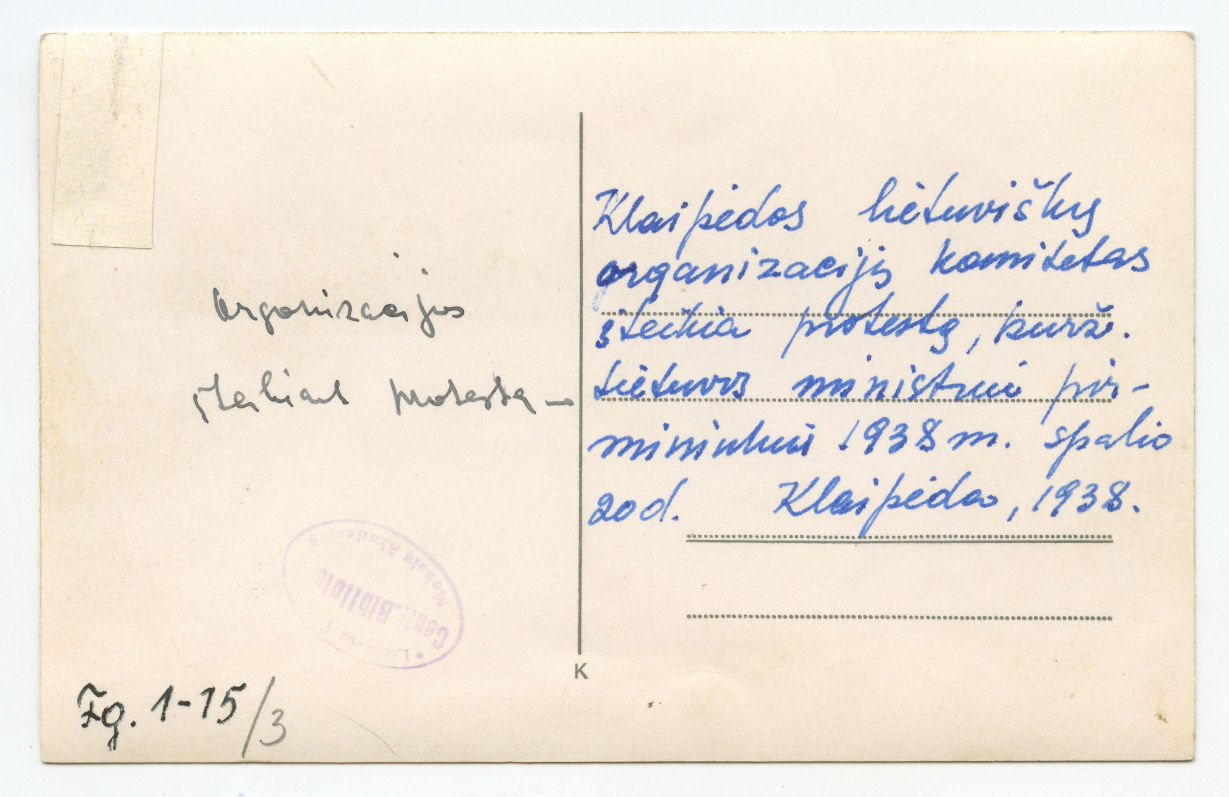 Organizacijos
įteikiant protestą –
Klaipėdos lietuviškų
organizacijų komitetas
įteikia protestą,
Lietuvos ministrui pir-
mininkui 1938 m. spalio
20 d. Klaipėda, 1938.
Mokslų Akademijos
Centr. Biblioteka
K
Fg. 1-15/3